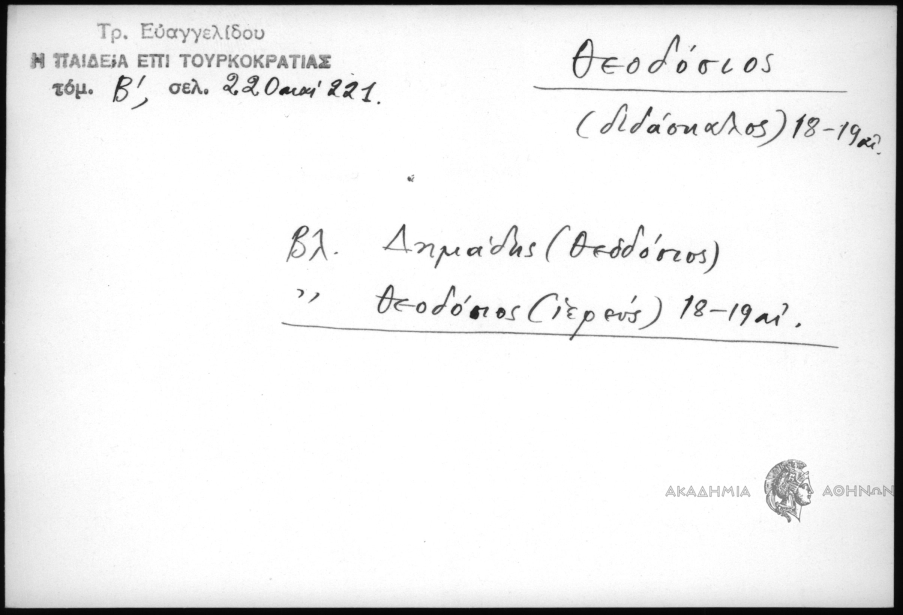 Τρ. Εὐαγγελίδου
Η ΠΑΙΔΕΙΑ ΕΠΙ ΤΟΥΡΚΟΚΡΑΤΙΑΣ
τόμ. Β', σελ. 220 καὶ 221.
Θεοδόσιος
(διδάσκαλος) 18-19 αἰ.
Βλ. Δημάδης (Θεοδόσιος)
,, Θεοδόσιος (ἱερεύς) 18-19 αἰ.
ΑΚΑΔΗΜΙΑ ΑΘΗΝΩΝ